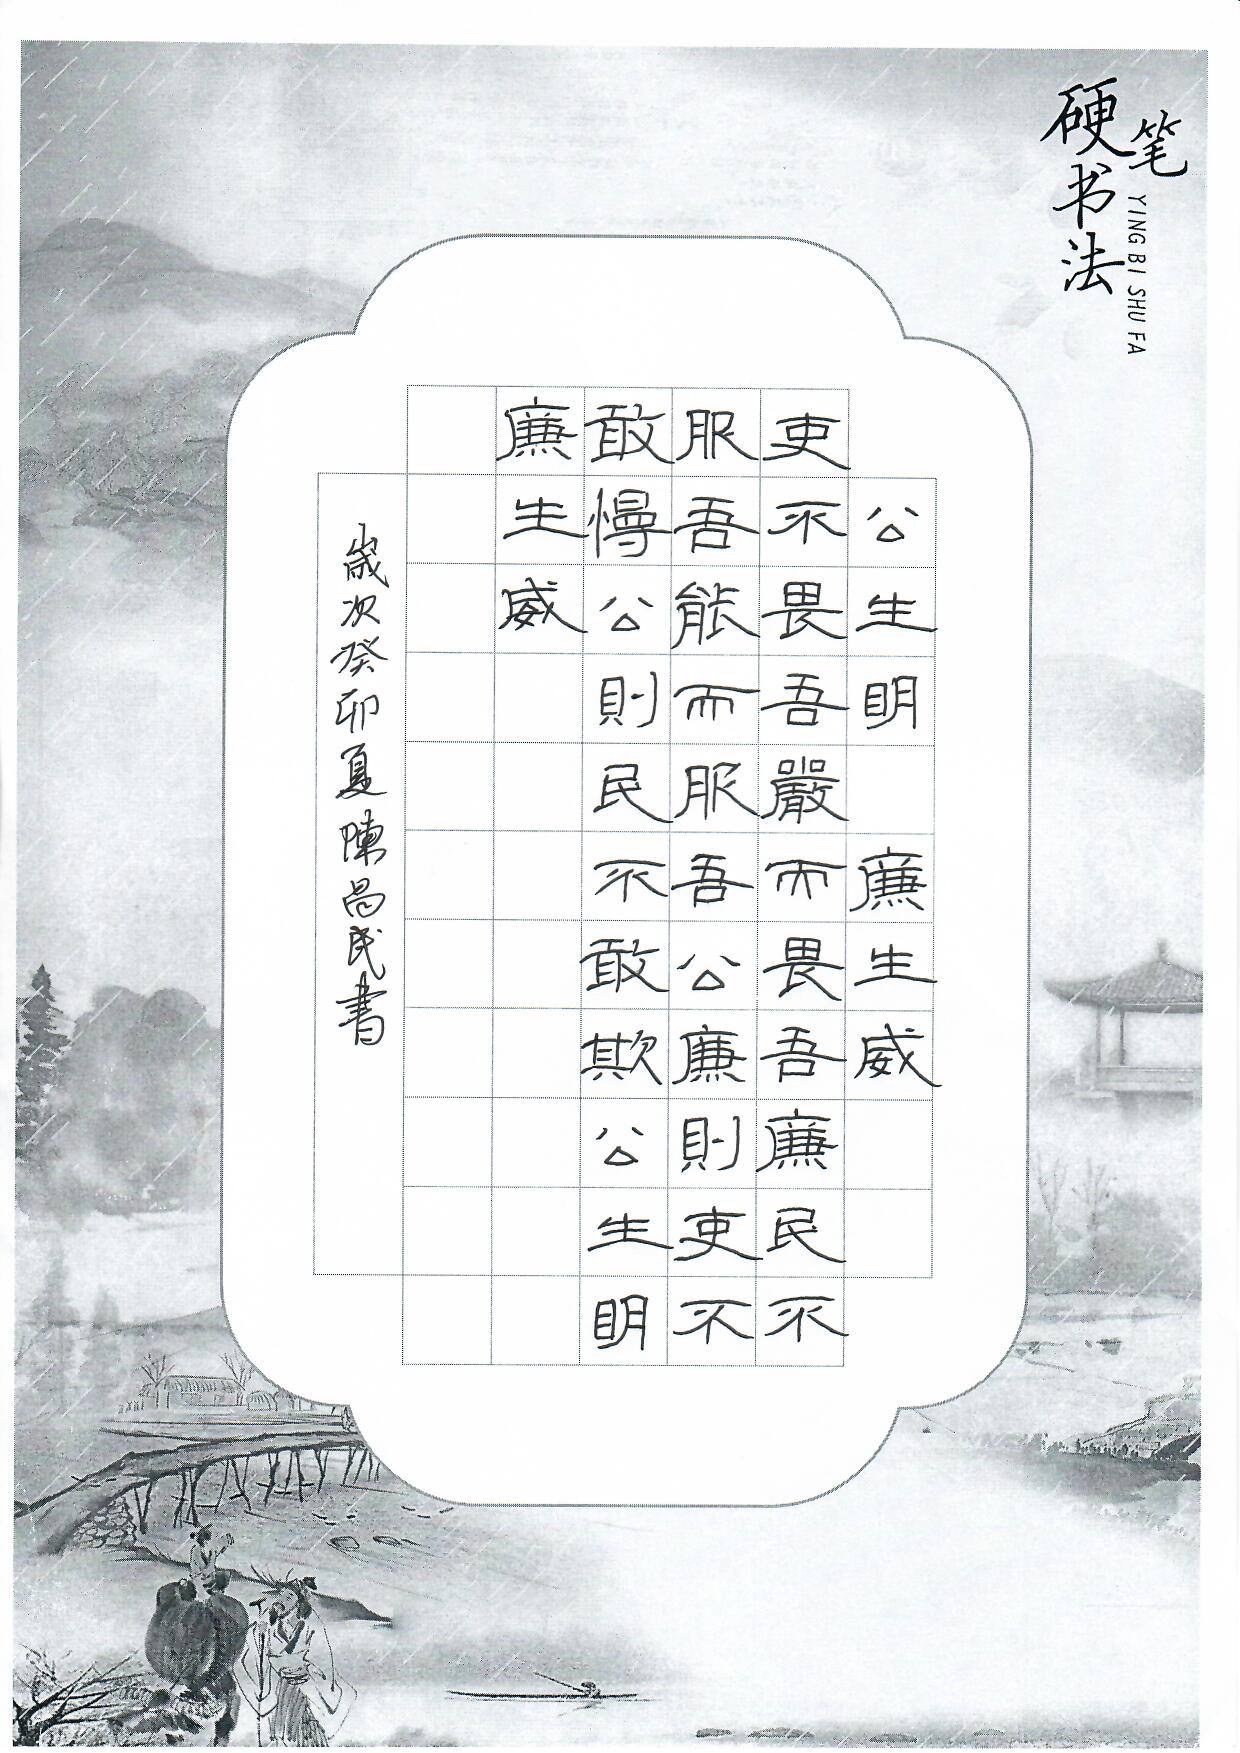 硬笔书法
YING BI SHU FA
公生明 廉生威
吏不畏吾嚴而畏吾廉民不
服吾能而服吾公廉則吏不
敢慢公則民不敢欺公生明
廉生威
歲次癸卯夏陳昌民書